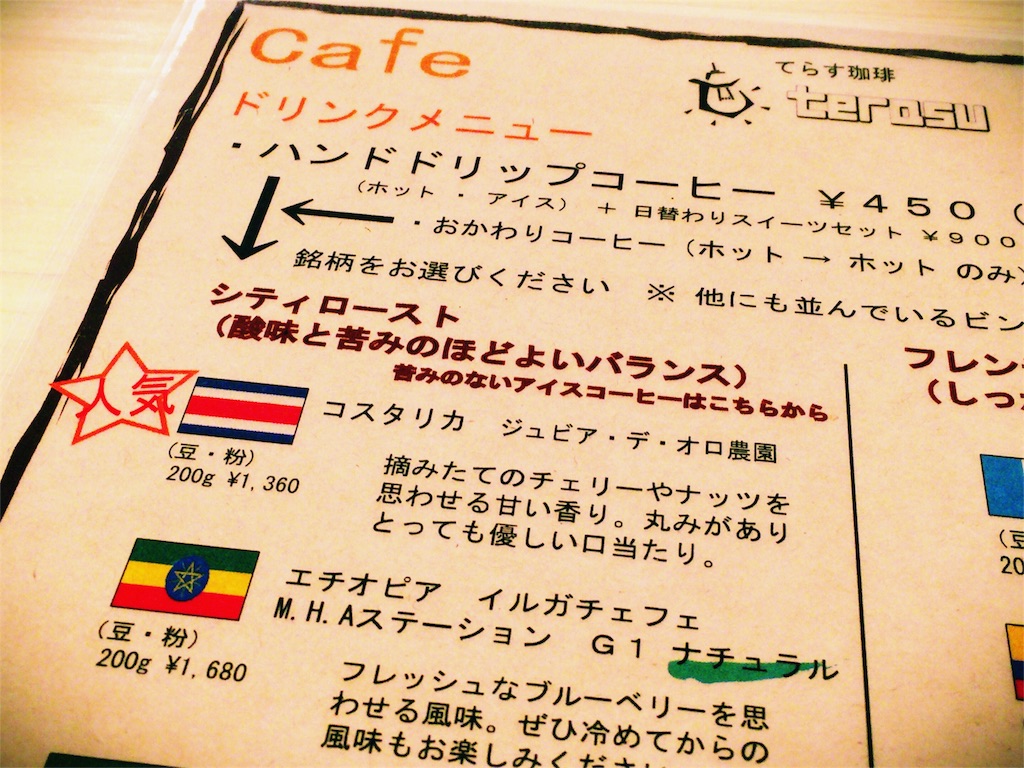 Cafe
てらす珈琲
terasu
ドリンクメニュー
・ハンドドリップコーヒー ￥４５０（
（ホット ・ アイス） ＋ 日替わりスイーツセット ￥９００
・おかわりコーヒー（ホット → ホット のみ）
銘柄をお選びください ※ 他にも並んでいるビン
シティロースト
（酸味と苦みのほどよいバランス）
苦みのないアイスコーヒーはこちらから
人気
コスタリカ ジュビア・デ・オロ農園
（豆・粉）
200g ¥1,360
摘みたてのチェリーやナッツを
思わせる甘い香り。丸みがあり
とっても優しい口当たり。
エチオピア イルガチェフェ
M.H.Aステーション Ｇ１ ナチュラル
（豆・粉）
200g ¥1,680
フレッシュなブルーベリーを思
わせる風味。ぜひ冷めてからの
風味もお楽しみくださ
フレン
（しっ
（豆
20